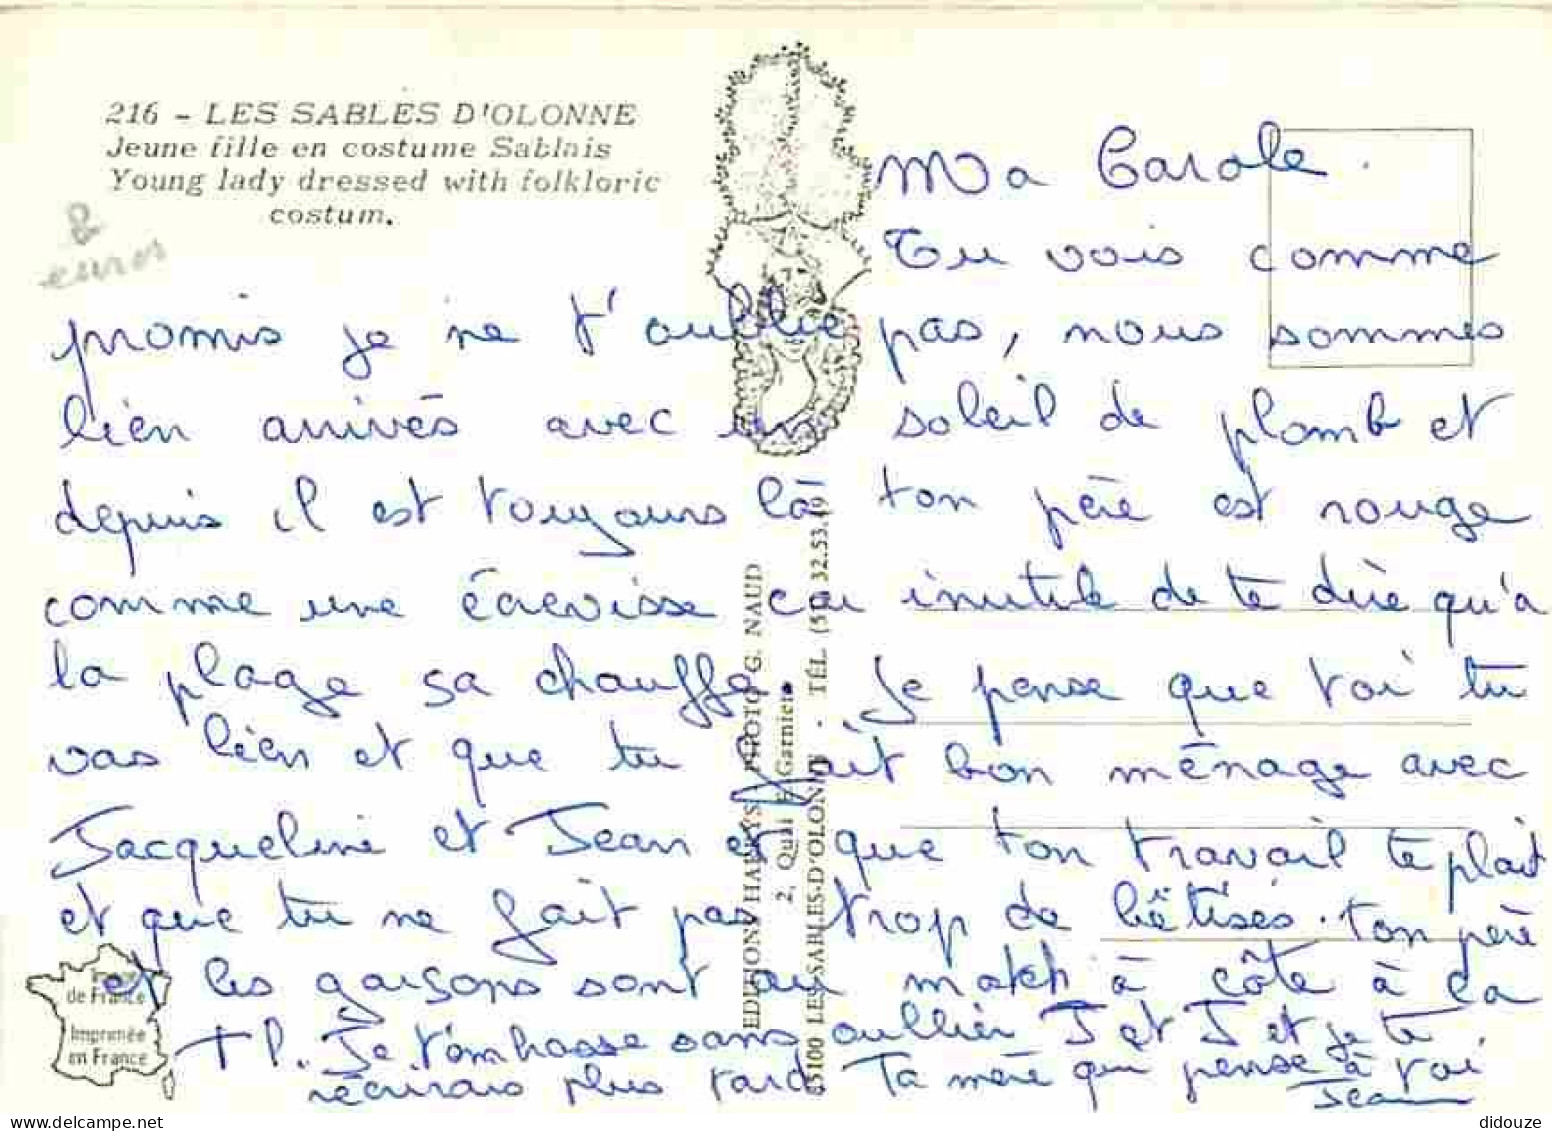 216 - LES SABLES D'OLONNE
Jeune fille en costume Sablais
Young lady dressed with folkloric
costum.
8
euros
Ma Carole.
Tu vois comme
promis je ne t'oublie pas, nous sommes
bien arrivés avec un soleil de plomb et
depuis il est toujours là ton père est rouge
comme une écrevisse car inutile de te dire qu'à
la plage sa chauffe. Je pense que toi tu
vas bien et que tu fait bon ménage avec
Jacqueline et Jean et que ton travail te plait
et que tu ne fait pas trop de bêtises. ton père
et les garsons sont au match à côte à ca
Je t'embrasse sans oublier J et J et je te
réecrirais plus tard Ta mère qui pense à toi.
Jean
EDITIONS HARRYS PHOTO G. NAUD
2, Quai F. Garnier
85100 LES SABLES-D'OLONNE - TÉL. (51) 32.53.49
France
de France
Imprimée
en France
didouze